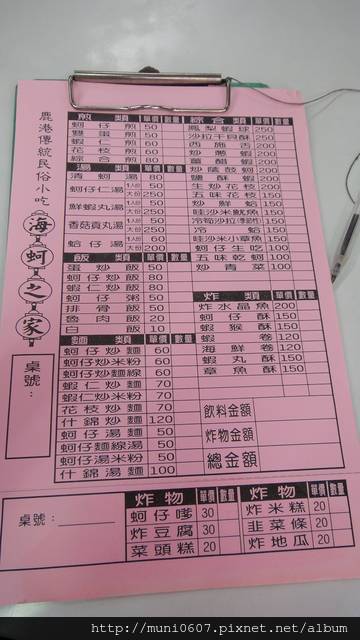 鹿港傳統民俗小吃
海蚵之家
桌號：
煎類 單價 數量
蚵仔煎 50
雙蛋煎 50
蝦仁煎 60
花枝煎 60
綜合煎 80
湯類 單價 數量
清蚵 80
蚵仔仁湯 1人份 50
大份 200
鮮蝦丸湯 1人份 50
大份 200
香菇貢丸湯 1人份 50
大份 200
蛤仔湯 1人份 50
大份 200
飯類 單價 數量
蛋炒飯 50
蚵仔炒飯 80
蝦仁炒飯 80
蚵仔粥 50
排骨飯 50
魯肉飯 20
白飯 10
麵類 單價 數量
蚵仔炒麵 60
蚵仔炒米粉 60
蚵仔炒麵線 60
蝦仁炒飯 70
蝦仁炒麵 70
花枝炒麵 70
什錦炒麵 120
蚵仔湯麵 50
蚵仔麵線湯 50
蚵仔湯米粉 50
什錦湯麵 100
綜合類 單價 數量
鳳梨蝦球 250
沙拉干貝酥 250
西施舌 200
炒帶蝦 200
薑醋蝦 200
炒蔭豉蚵 200
鹽酥蝦 200
生炒花枝 200
五味花枝 150
炒蛤 150
哇沙米魷魚 150
冷蛤 150
哇沙米小章魚 150
蚵仔生吃 100
五味乾蚵 100
炒青菜 100
炸類 單價 數量
炸水晶魚 200
蚵仔酥 150
蝦猴酥 150
蝦卷 120
海鮮卷 120
蝦丸酥 150
章魚酥 150
飲料金額
炸物金額
總金額
桌號：
炸物 單價 數量
蚵仔嗲 30
炸豆腐 30
菜頭糕 20
炸物 單價 數量
炸米糕 20
韭菜條 20
炸地瓜 20
http://muni0607.pixnet.net/album